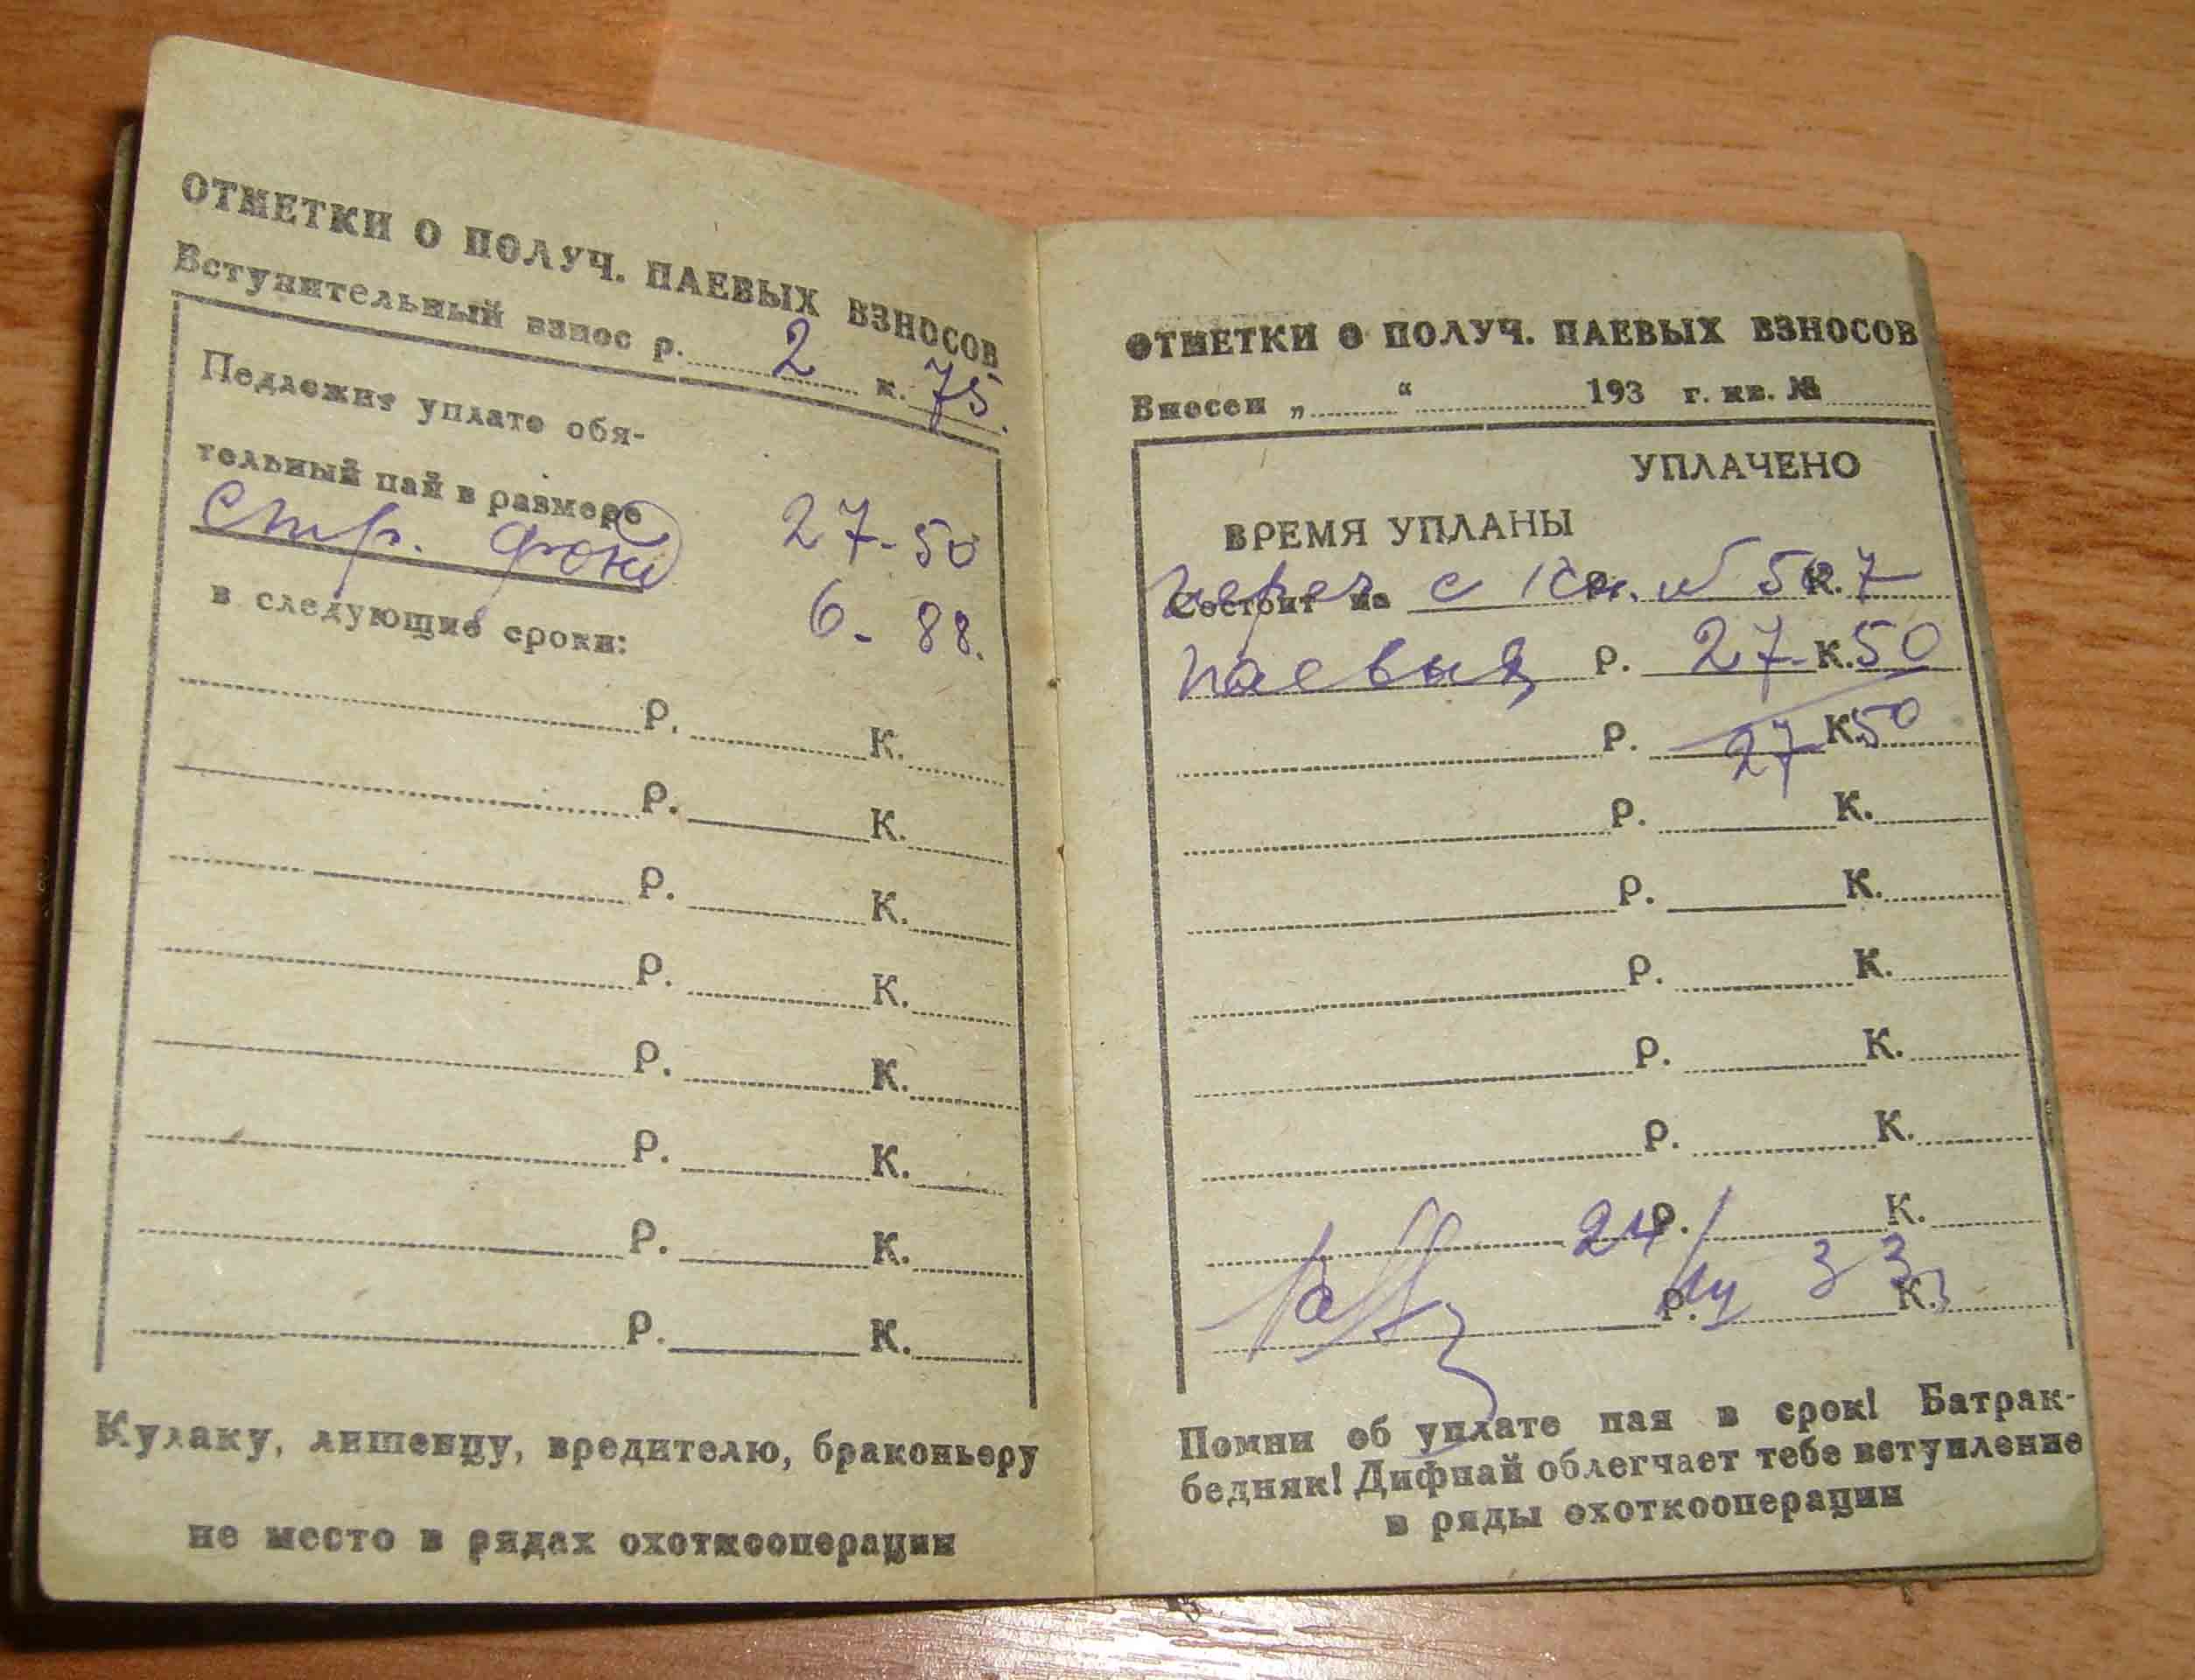 ОТМЕТКИ О ПОЛУЧ. ПАЕВЫХ ВЗНОСОВ
Вступительный взнос р. 2 к. 75.
Педлежит уплате обя-
тельный пай в размере 27-50
стр. фонд 6-88.
в следующие сроки:
р. К.
р. К.
р. К.
р. К.
р. К.
р. К.
р. К.
р. К.
Кулаку, лишенцу, вредителю, браконьеру
не место в рядах охоткооперации
ОТМЕТКИ О ПОЛУЧ. ПАЕВЫХ ВЗНОСОВ
Внесен „ “ 193 г. кв. №
УПЛАЧЕНО
ВРЕМЯ УПЛАНЫ
Состоит на р. К.
перен с кн. № 507
паевых р. 27-К.50
р. 27 К.50
р. К.
р. К.
р. К.
р. К.
р. К.
24/ р. К.
IV 33 р. К.
Помни об уплате пая в срок! Батрак-
бедняк! Дифпай облегчает тебе вступление
в ряды охоткооперации